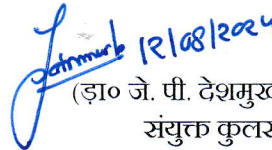 12/08/2024
(ड़ा० जे. पी. देशमुख
संयुक्त कुलस